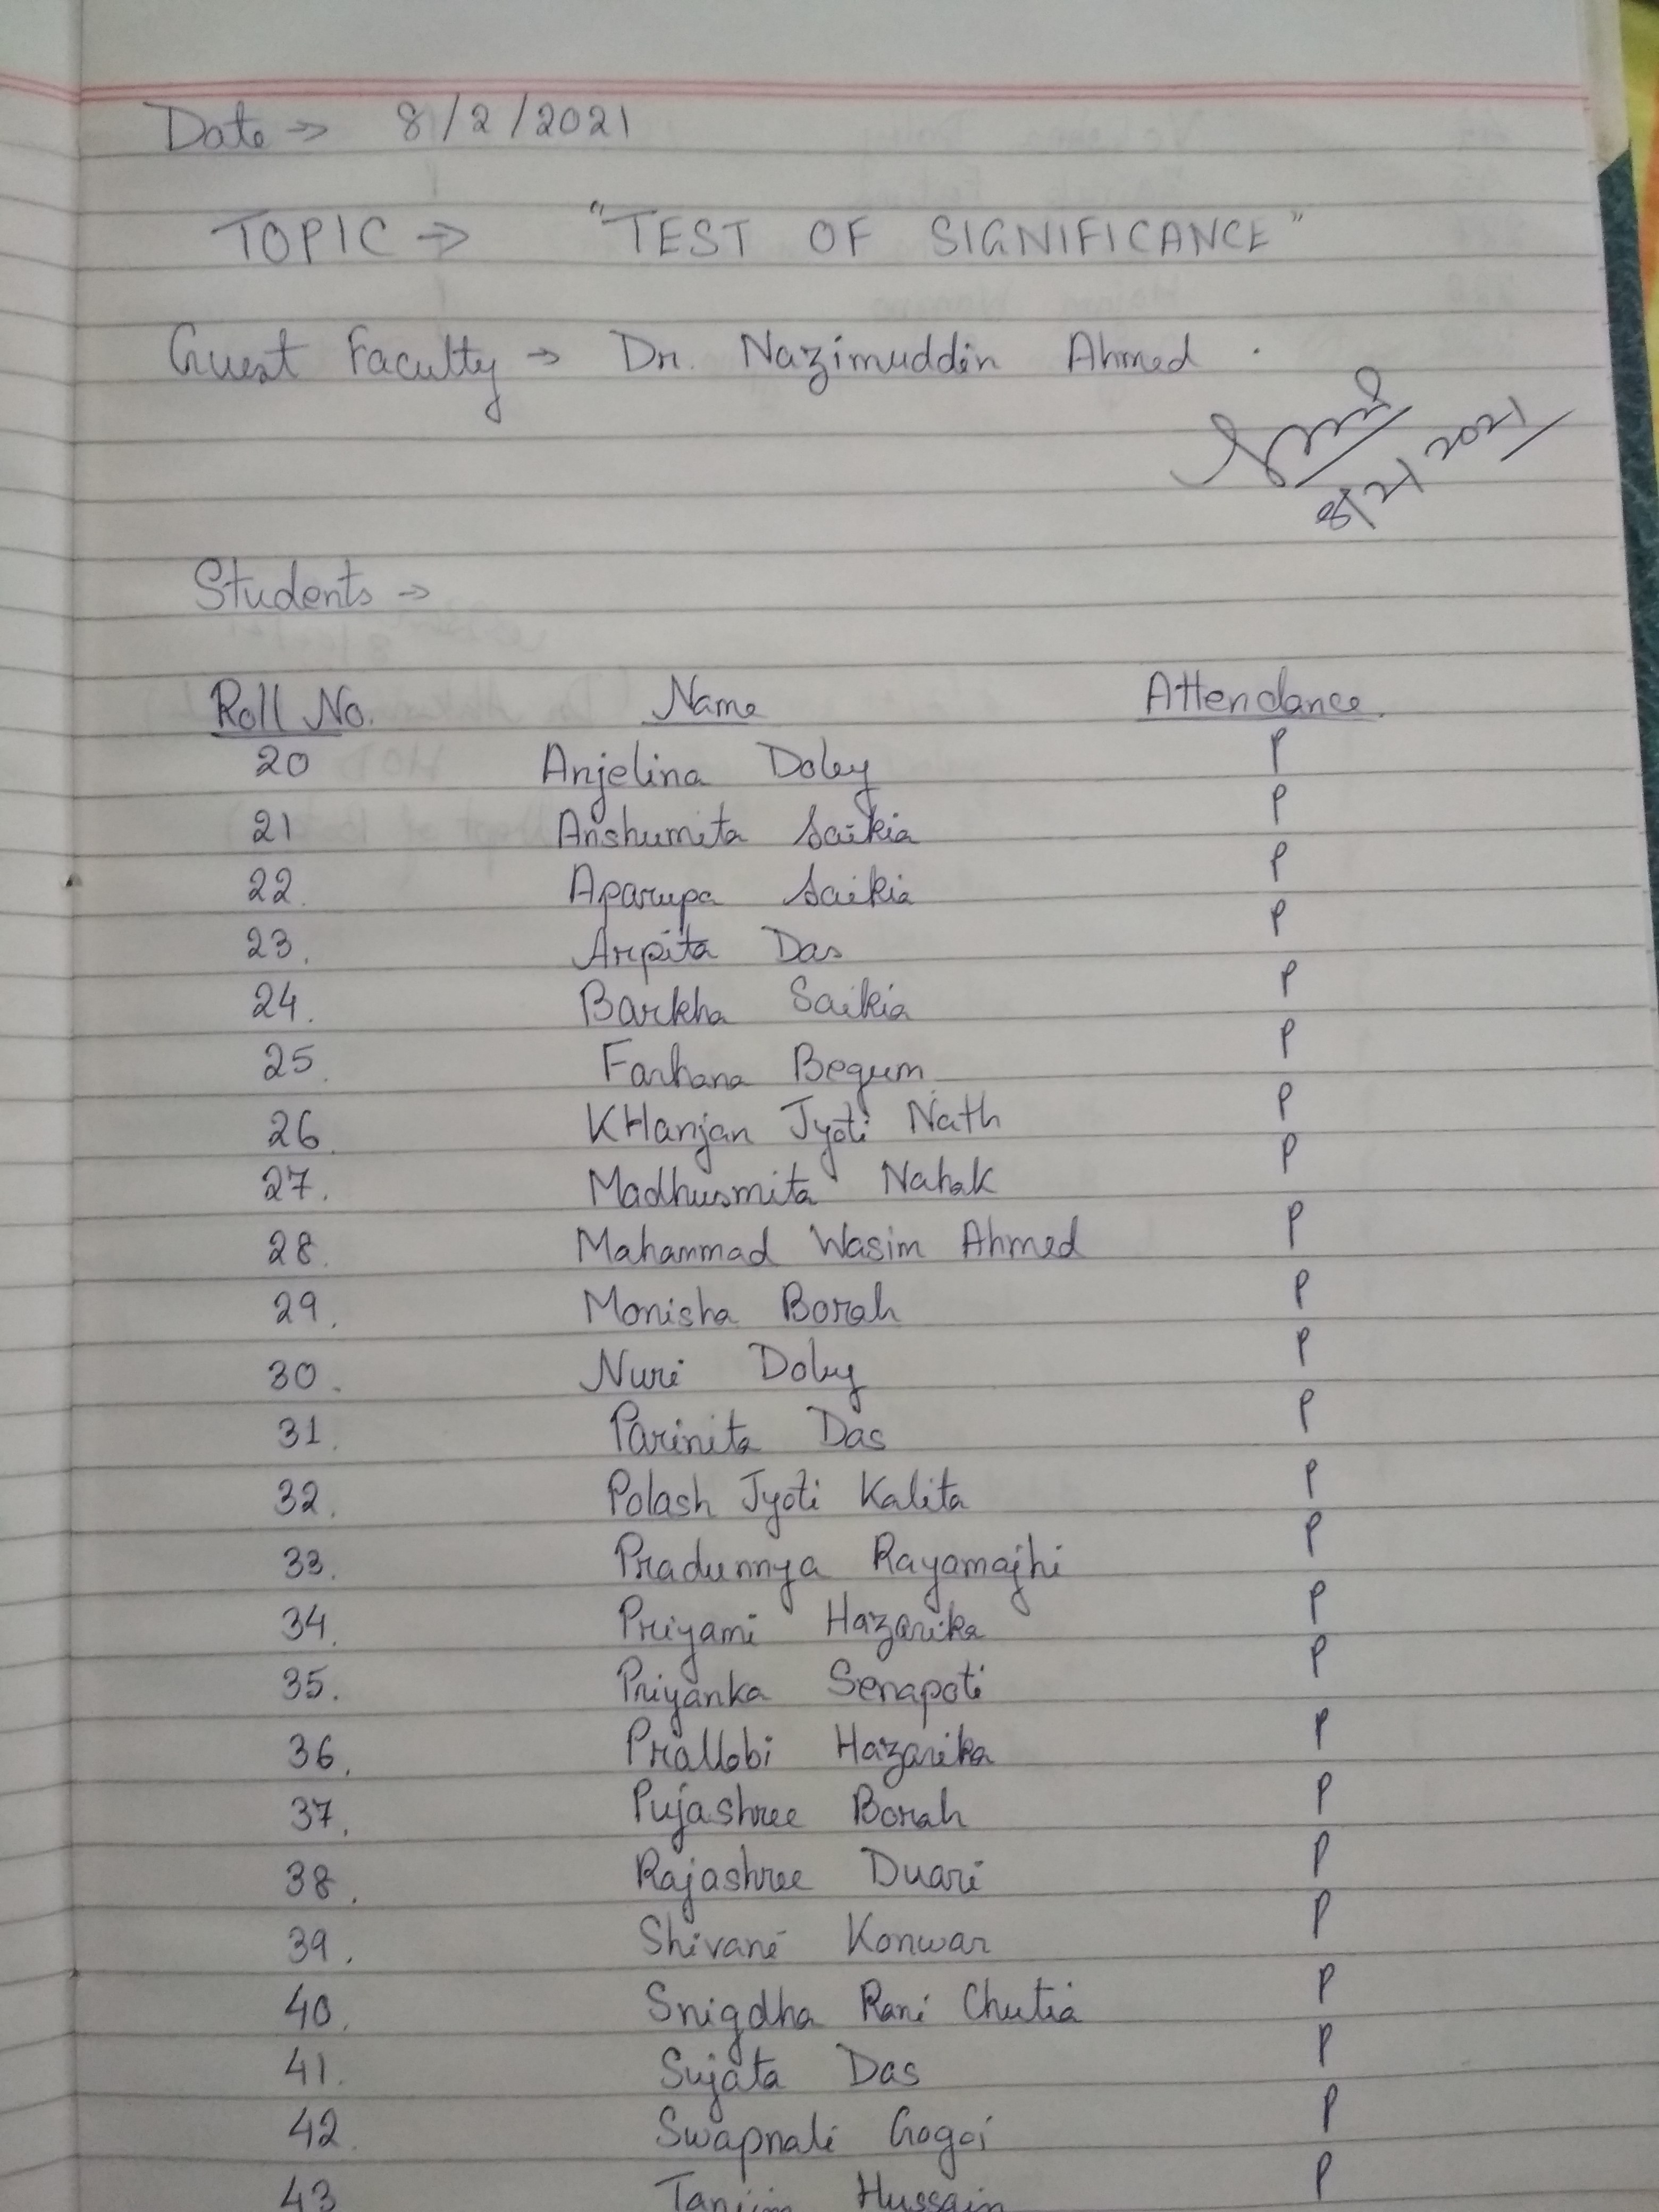 Date → 8/2/2021
TOPIC → "TEST OF SIGNIFICANCE"
Guest Faculty → Dr. Nazimuddin Ahmed.
8/2/2021
Students →
Roll No. Name Attendance.
20 Anjelina Doley P
21 Anshumita Saikia P
22. Aparupa Saikia P
23. Arpita Das P
24. Barkha Saikia P
25. Farhana Begum P
26. KHanjan Jyoti Nath P
27. Madhusmita Nahak P
28. Mahammad Wasim Ahmed P
29. Monisha Borah P
30. Nuri Doley P
31. Parinita Das P
32. Polash Jyoti Kalita P
33. Pradunnya Rayamajhi P
34. Priyami Hazarika P
35. Priyanka Senapoti P
36. Prallobi Hazarika P
37. Pujashree Borah P
38. Rajashree Duari P
39. Shivani Konwar P
40. Snigdha Rani Chutia P
41. Sujata Das P
42. Swapnali Gogoi P
43 Hussain P